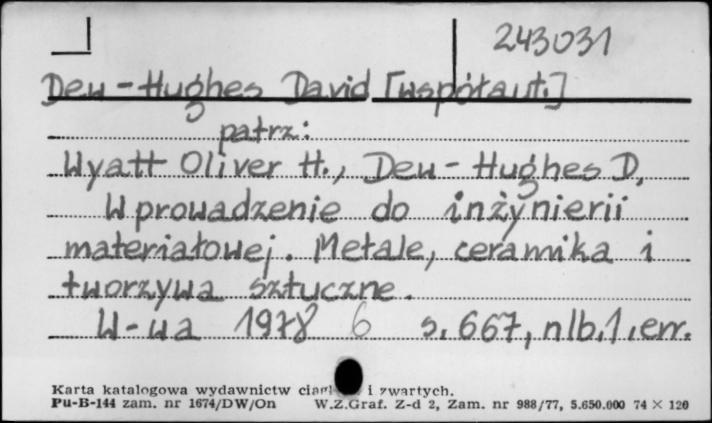 243031
Dew-Hughes David [współaut.]
patrz:
Wyatt Oliver H., Dew-Hughes D,
Wprowadzenie do inżynierii
materiałowej. Metale, ceramika i
tworzywa sztuczne.
W-wa 1978 6 s. 667, nlb. 1, err.
Karta katalogowa wydawnictw i zwartych.
Pu-B-144 zam. nr 1674/DW/On W.Z.Graf. Z-d 2, Zam. nr 988/77, 5.650.000 74 × 120